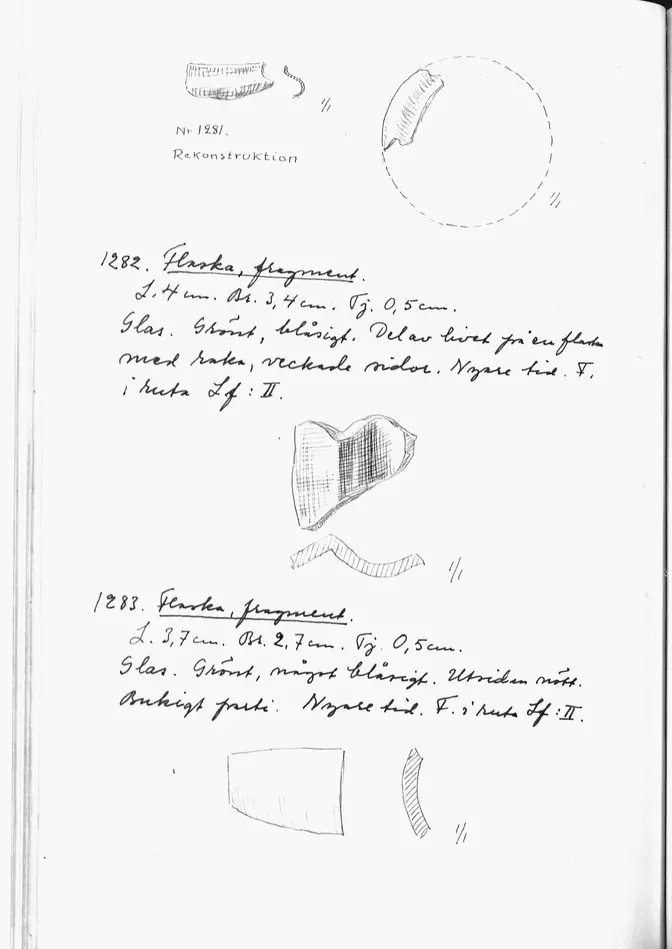 1/1
Nr 1281.
Rekonstruktion
1/1
1282. Flaska, fragment.
L. 4 cm. Br. 3,4 cm. Tj. 0,5 cm.
Glas. Grönt, blåsigt. Del av livet på en flaska
med raka, veckade sidor. Nyare tid. F.
i ruta Lf : II.
1/1
1283. Flaska, fragment.
L. 3,7 cm. Br. 2,7 cm. Tj. 0,5 cm.
Glas. Grönt, något blåsigt. Utsidan nött.
Bukigt parti. Nyare tid. F. i ruta Lf : II.
1/1